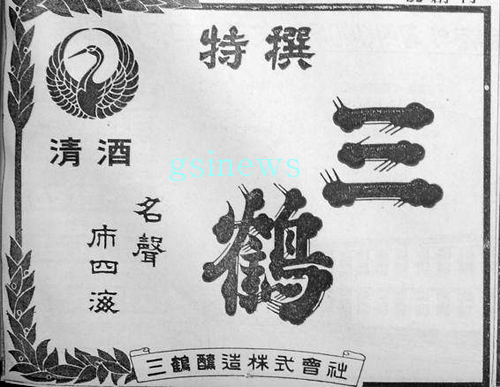 特撰
清酒
三鶴
名聲
布四海
三鶴釀造株式會社
gsinews